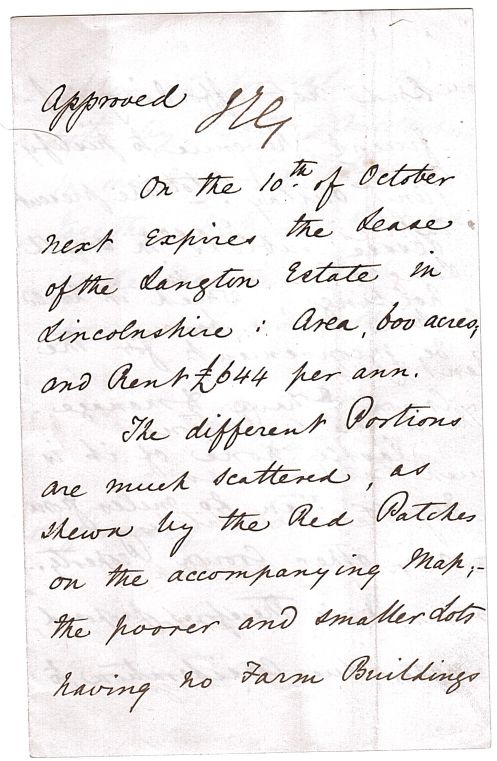 Approved
On the 10th of October
next Expires the Lease
of the Langton Estate in
Lincolnshire : Area, 600 acres,
and Rent £644 per ann.
The different Portions
are much scattered, as
shewn by the Red Patches
on the accompanying Map,-
the poorer and smaller Lots
having no Farm Buildings